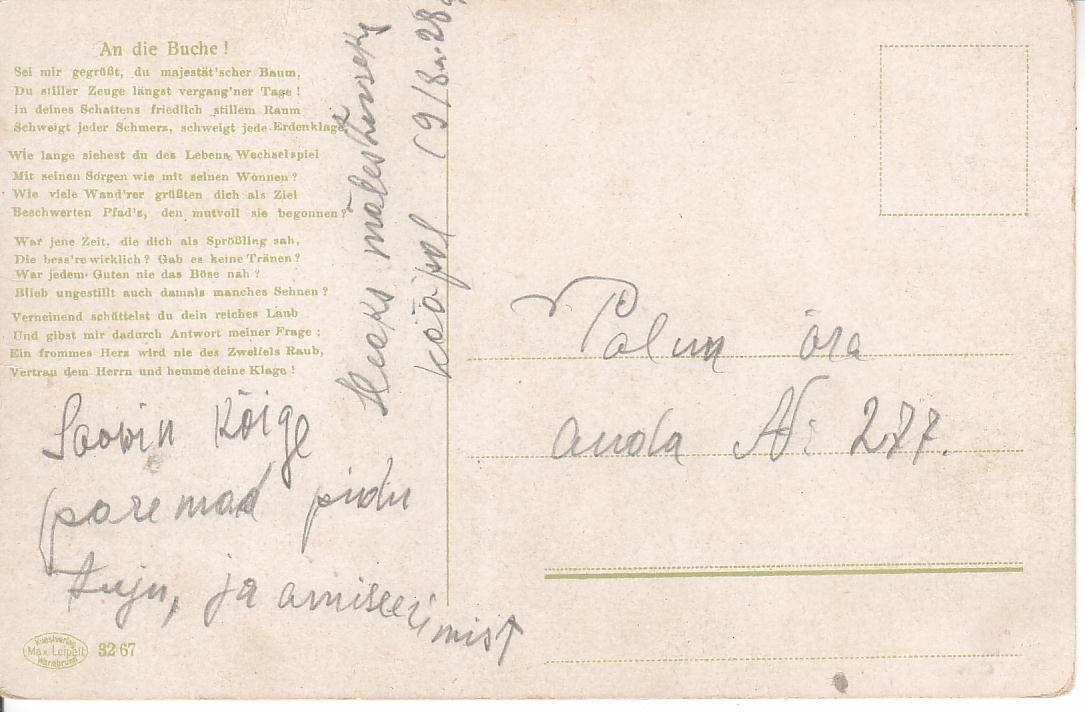 An die Buche!
Sei mir gegrüßt, du majestät'scher Baum,
Du stiller Zeuge längst vergang'ner Tage!
In deines Schattens friedlich stillem Raum
Schweigt jeder Schmerz, schweigt jede Erdenklage.
Wie lange siehest du des Lebens Wechselspiel
Mit seinen Sorgen wie mit seinen Wonnen?
Wie viele Wand'rer grüßten dich als Ziel
Beschwerten Pfad's, den mutvoll sie begonnen?
War jene Zeit, die dich als Sprößling sah,
Die bess're wirklich? Gab es keine Tränen?
War jedem Guten nie das Böse nah?
Blieb ungestillt auch damals manches Sehnen?
Verneinend schüttelst du dein reiches Laub
Und gibst mir dadurch Antwort meiner Frage:
Ein frommes Herz wird nie des Zweifels Raub,
Vertrau dem Herrn und hemme deine Klage!
Soowin kõige
paremad pidu
tuju, ja amiseerimist
mälestuseks
19/8 28
Palun ära
anda № 277.
Kunstverlag
Max Leipelt
Warmbrunn
3267